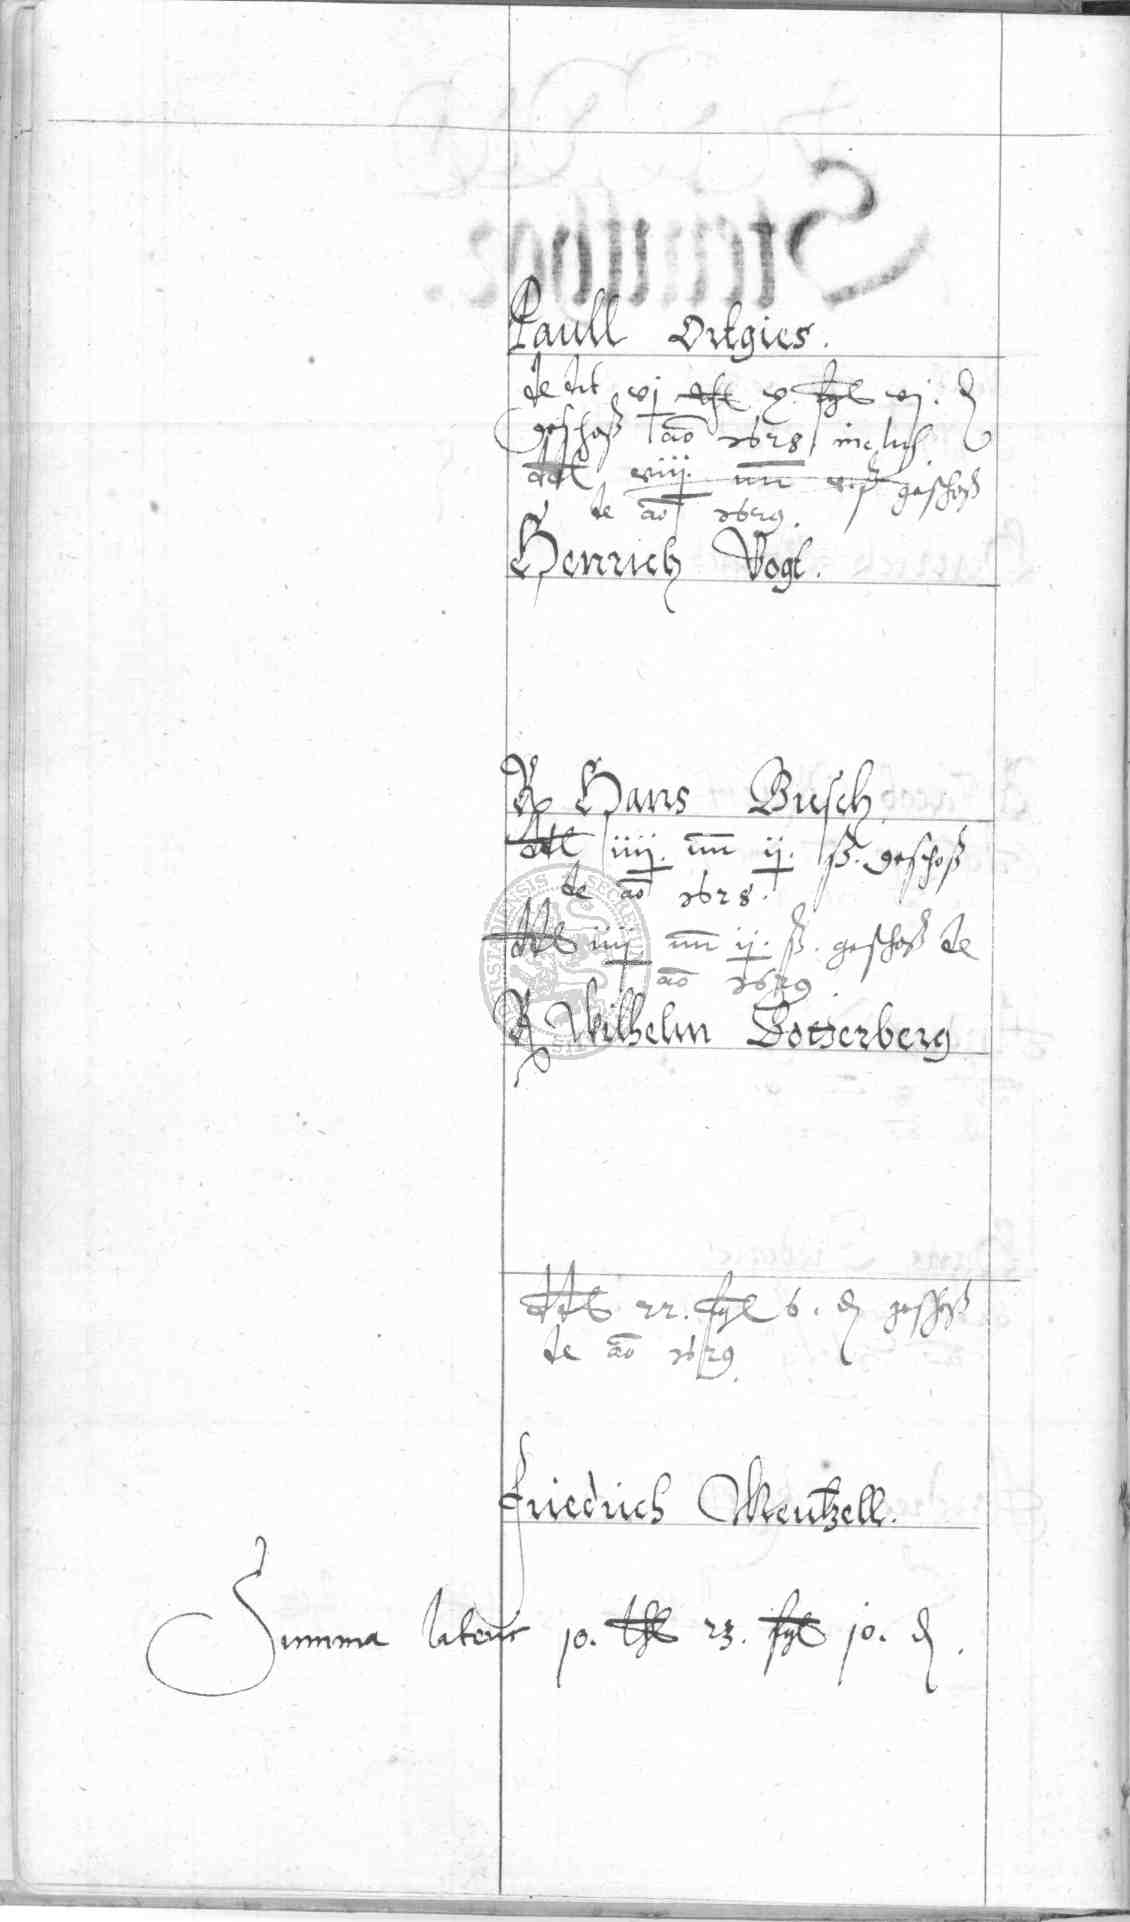 Paull Ortgies.
dedit vj thl v sgl vj. d
geschoß ao 1628 inclus
ddt viiij. v ß geschoß
de ao 1629.
Henrich Vogt.
R Hans Busch
ddt iiij. ij. ß. geschoß
de ao 1628.
ddt iiij ij. ß. geschoß de
ao 1629
R Wilhelm Dotzerberg
ddt 22. sgl 6. d geschoß
de ao 1629.
Friedrich Mentzell.
Summa lateris 10. thl 23. sgl 10. d.